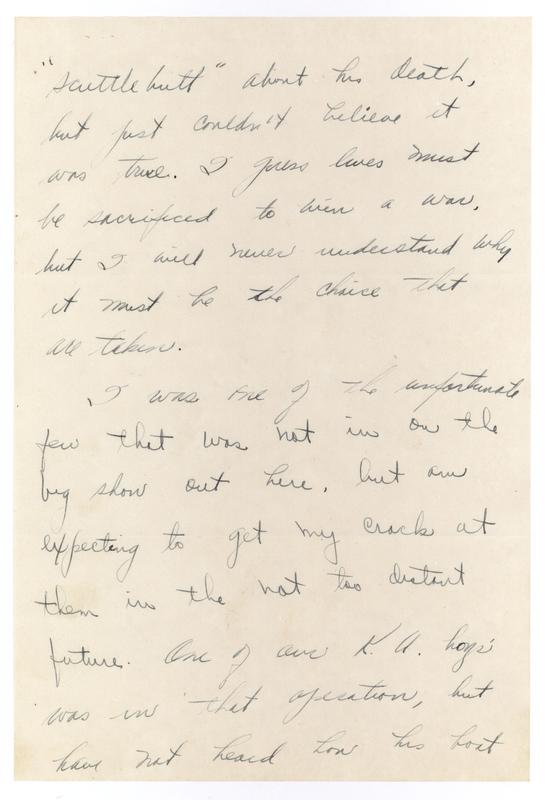 "scuttlebutt" about his death,
but just couldn't believe it
was true. I guess lives must
be sacrificed to win a war,
but I will never understand why
it must be the choice that
are taken.
I was one of the unfortunate
few that was not in on the
big show out here, but am
expecting to get my crack at
them in the not too distant
future. One of our K. A. boys
was in that operation, but
have not heard how his boat